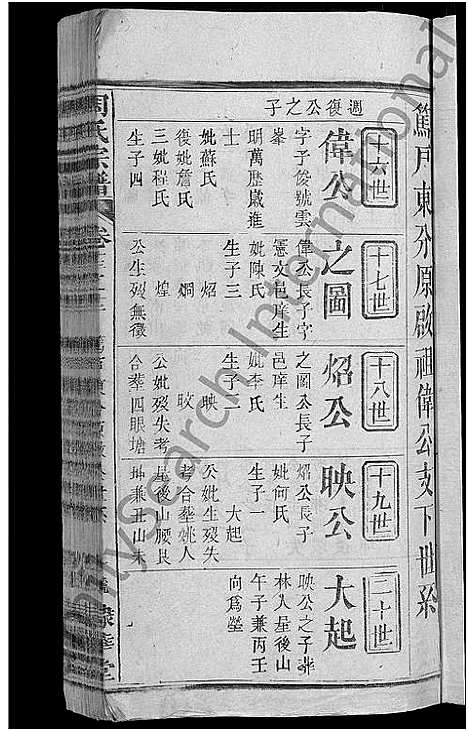 篤戶東分原啟祖偉公支下世系
十六世
週復公之子
偉公
字予俊號雲
峯
明萬歷歲進
士
妣蘇氏
復妣詹氏
三妣程氏
生子四
十七世
之圖
偉公長子字
憲文邑庠生
妣陳氏
生子三
炤
烱
煌
公生歿無徵
十八世
炤公
之圖公長子
邑庠生
妣李氏
生子二
映
旼
公妣歿失考
合塟四眼塘
十九世
映公
炤公長子
妣何氏
生子一
大起
公妣生歿失
考合塟姚人
屋後山腰艮
坤兼丑山未
二十世
大起
映公之子塟
林人屋後山
午子兼丙壬
向爲塋
周氏宗譜
卷
UnitySearch International